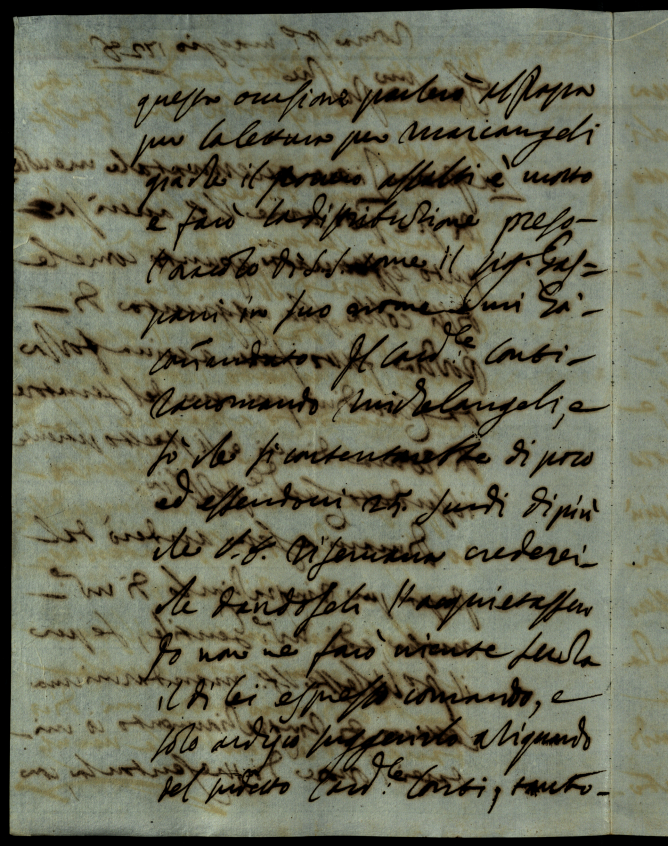 questa occasione parlerò al Papa
per la lettura per Marcangeli
giacke il povero è morto
e farò la distribuzione preso-
il sig. Gas=
parri in suo nome e mi hà -
com̃andato. Il Card.le Conti -
racomando Michelangeli, e
so che si contentarebbe di poco
ed essendovi 25. scudi di più
che V.S. riservava crederei -
che dandoseli s'acquietasse
Io non ne farò niente senza
il di lei espresso comando, e
solo ardisco suggerirlo a riguardo
del sudetto Card.le Conti, tanto -